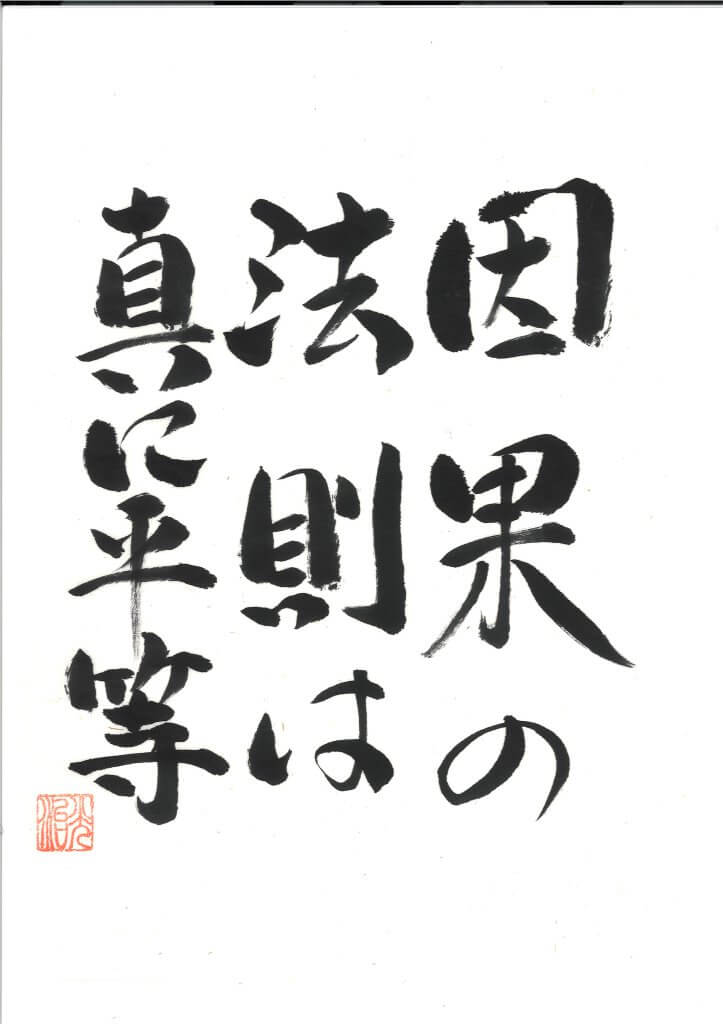 因果の
法則は
真に平等